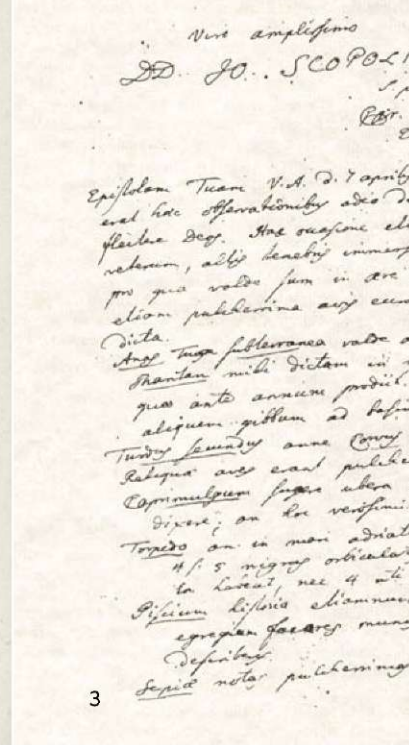 Viro amplissimo
DD. JO. SCOPOLI
S. p
Car.
Epistolam Tuam V. A. d. 7 aprilis
erat hoc observationibus adeo
flectere Deos. Hac occasione
veterum, altis tenebris immers
pro qua valde sum in ære
etiam pulcherrima avis
dicta.
Anas Tua subterranea valde
mihi dictam in
quæ ante annum prodiit.
aliquem gibbum ad basin
Turdus secundus anne Corvus
Reliquæ aves erant pulche
Caprimulgum sugere ubera
dixere; an hoc verosimi
Torpedo an in mari adriat
4 s. 5 nigras orbicular
habent, nec 4
Piscium historia etiamnum
egregium facares mun
describens.
Sepiæ notas pulcherrimas
3